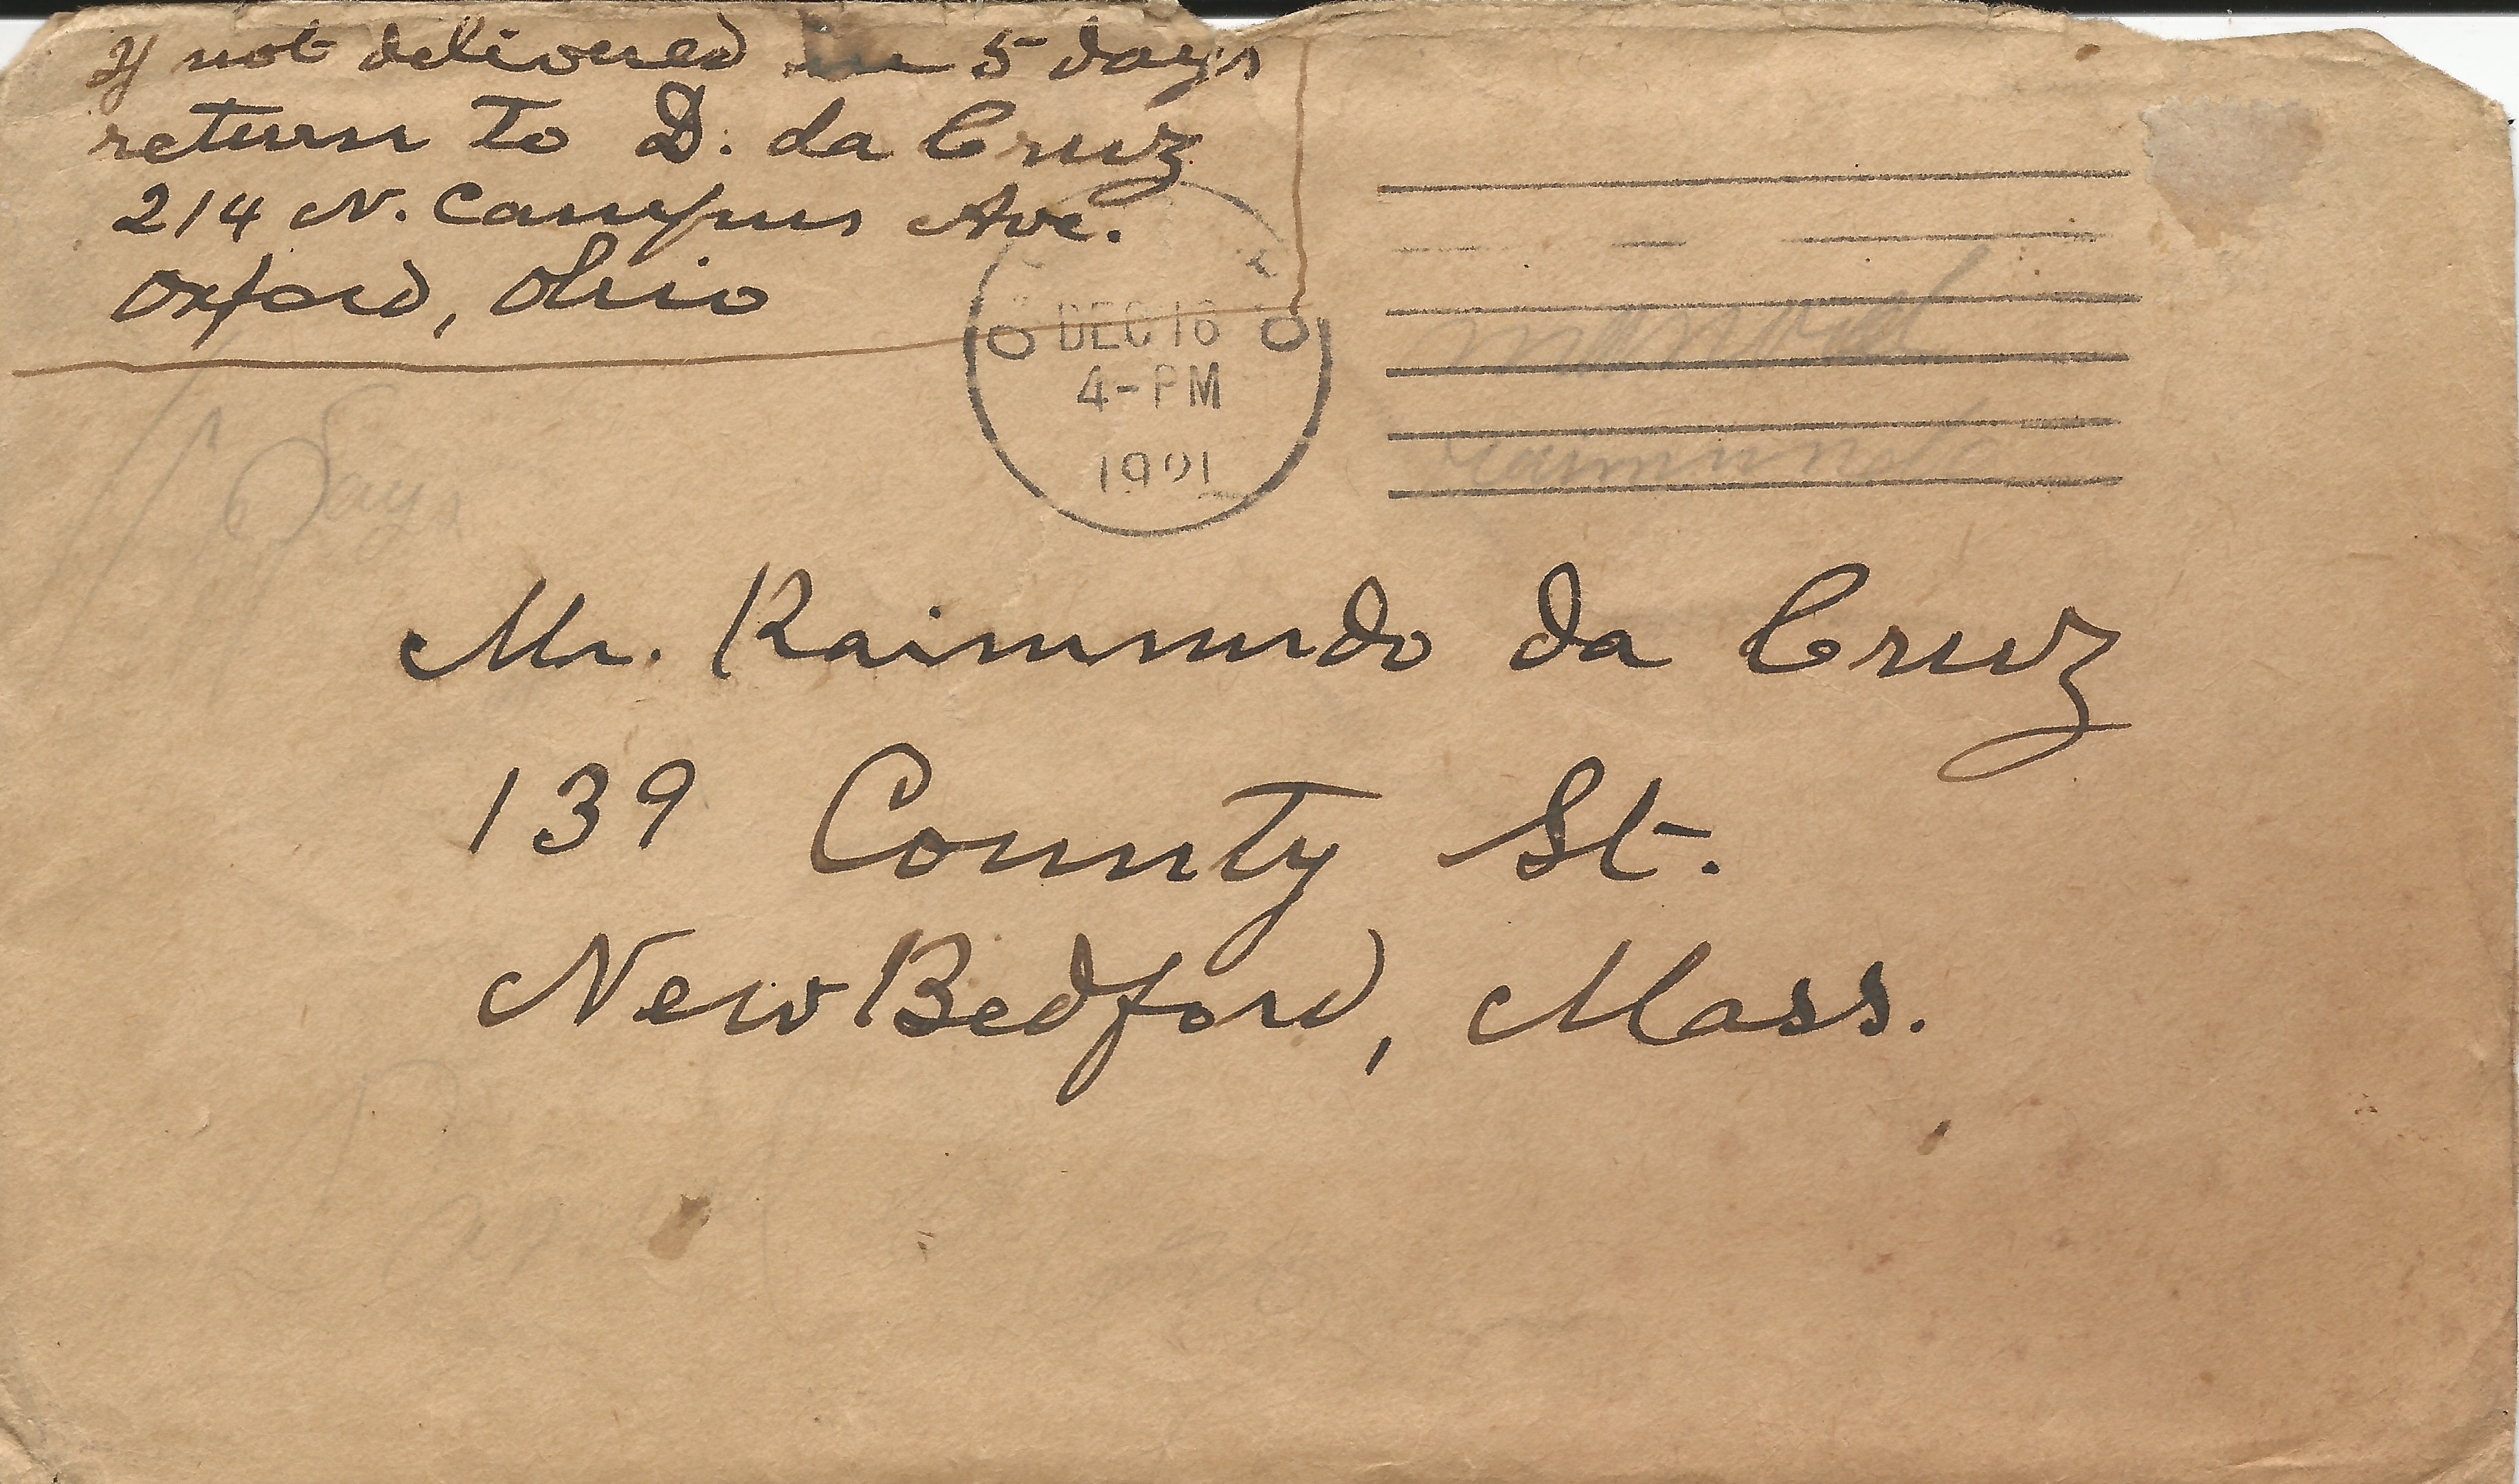 If not delivered in 5 days
return to D. da Cruz
214 N. Campus Ave.
Oxford, Ohio
DEC 16
4-PM
Days
Mr. Raimundo da Cruz
139 County St.
New Bedford, Mass.